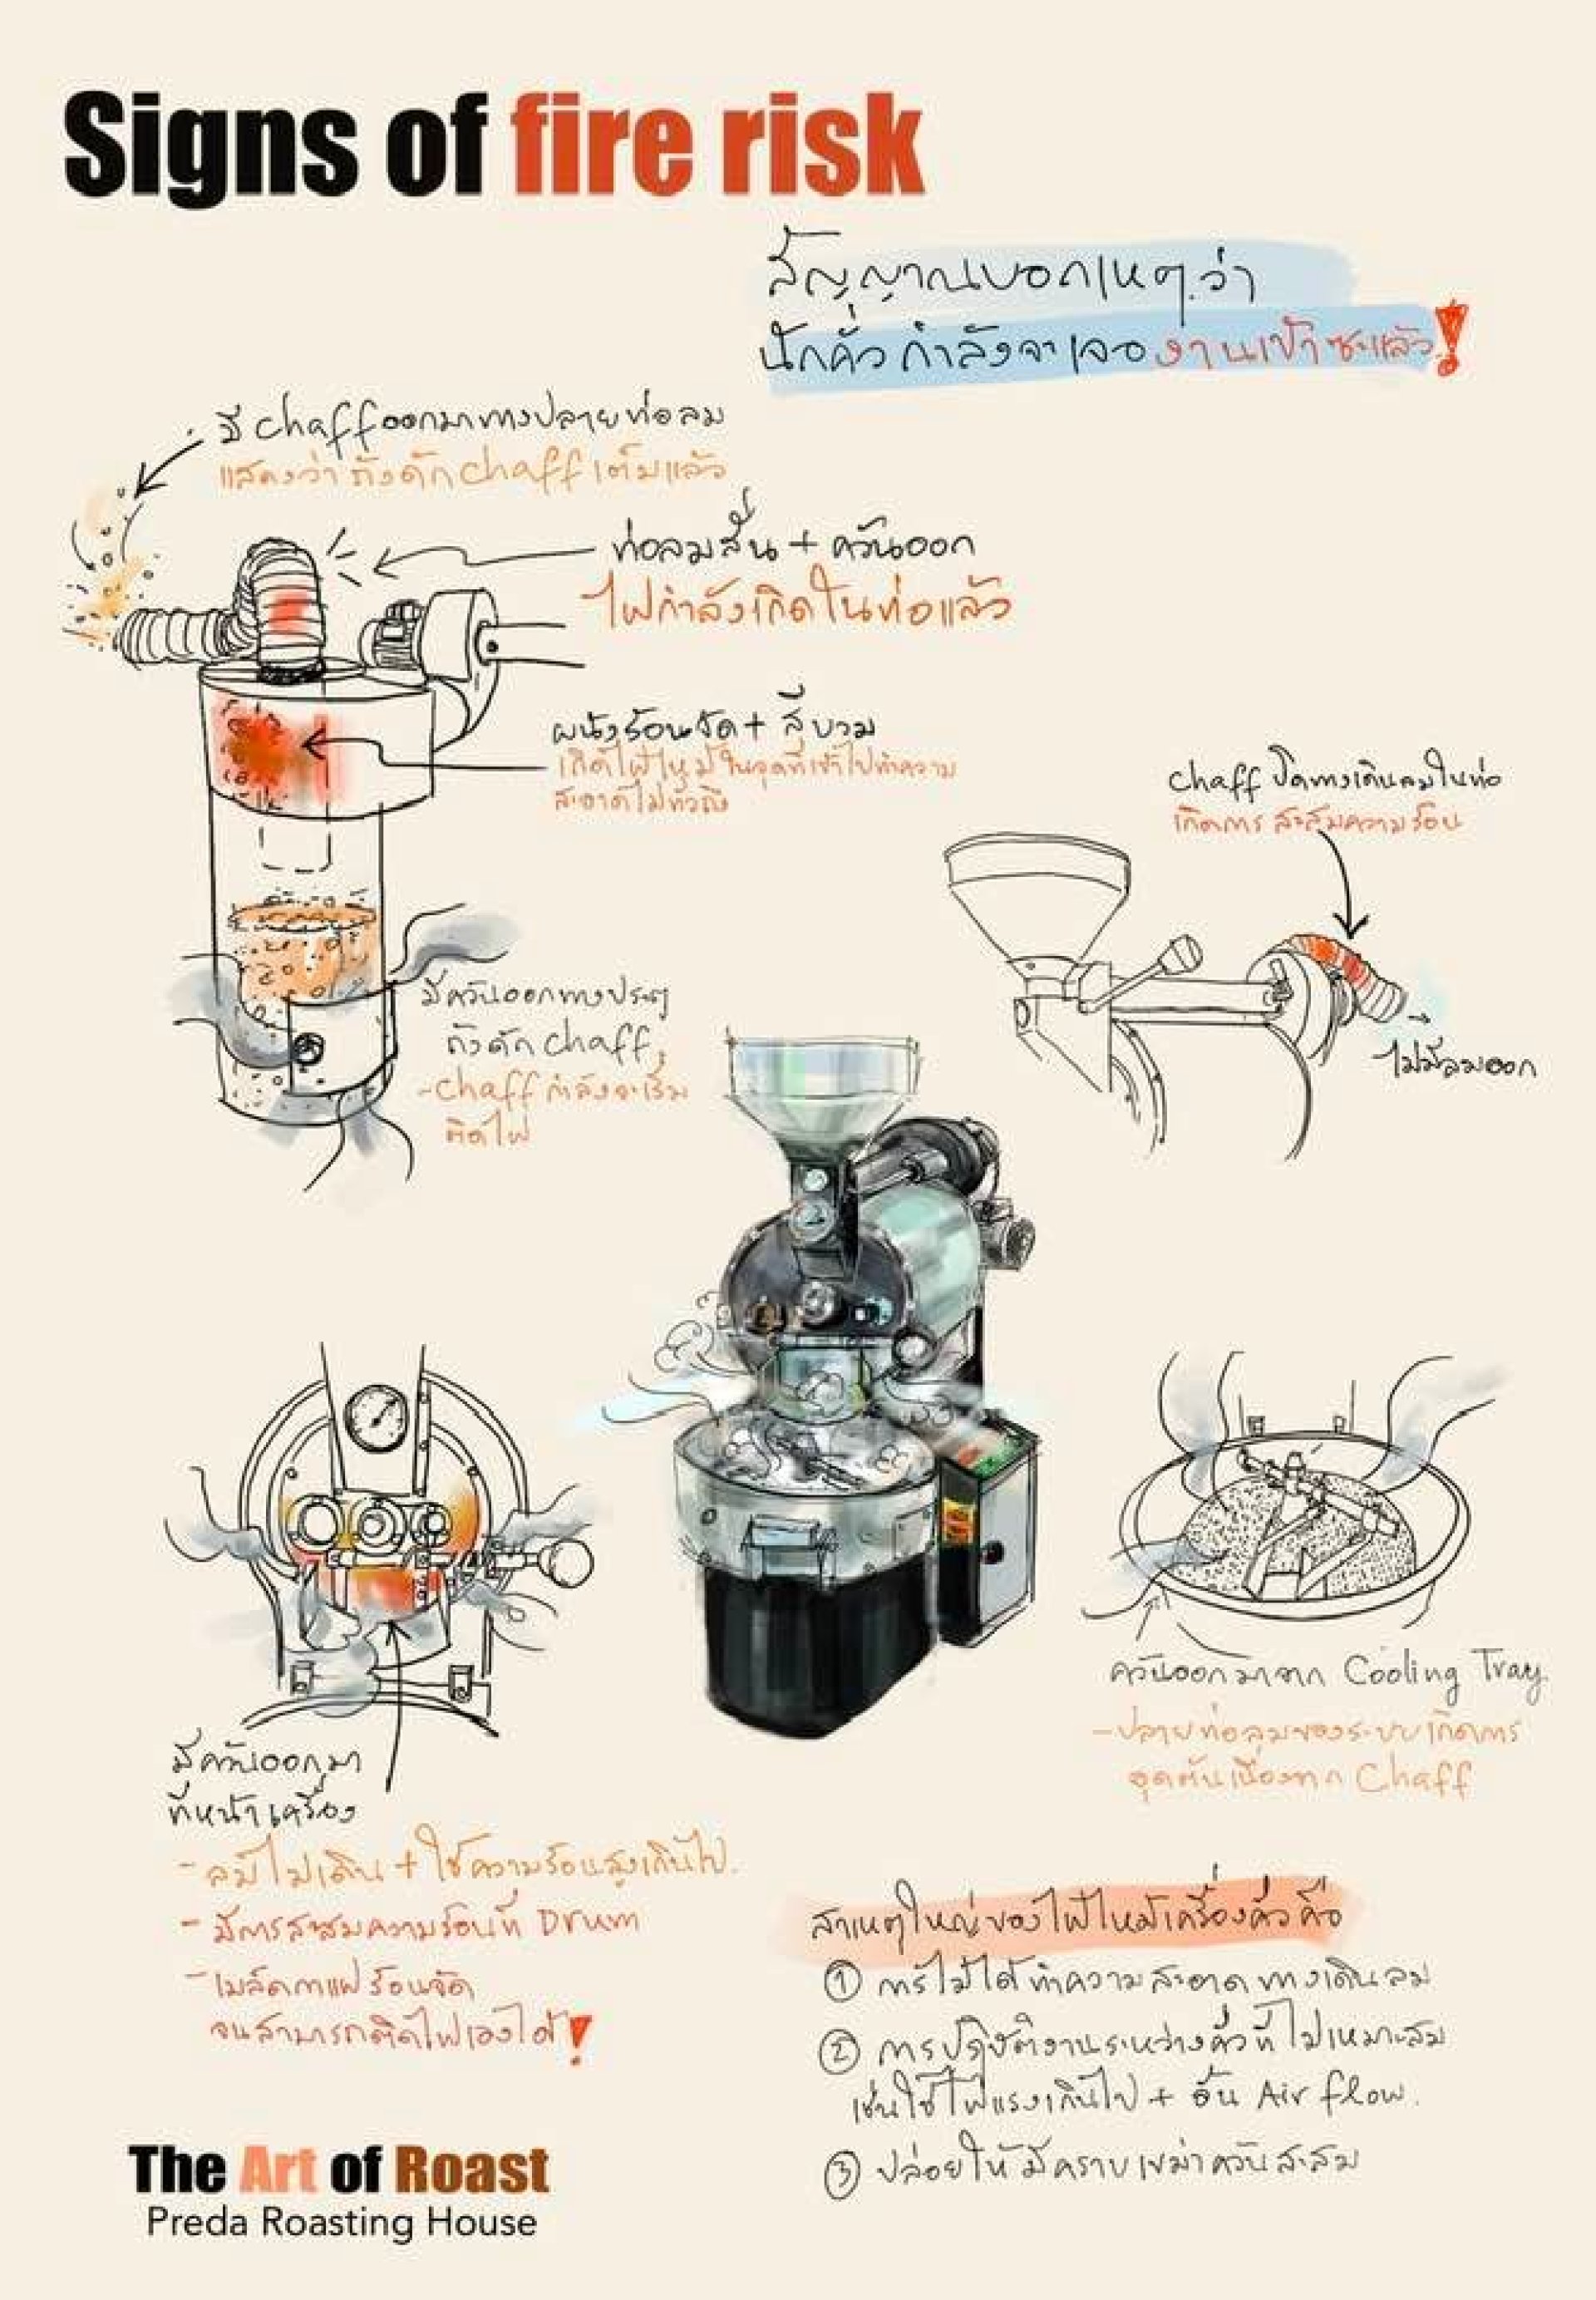 Signs of fire risk
สัญญาณบอกเหตุว่า
นักคั่วกำลังจะเจองานเข้าซะแล้ว!
มี chaff ออกมาทางปลายท่อลม
แสดงว่าถังดัก chaff เต็มแล้ว
ท่อลมสั่น + ควันออก
ไฟกำลังเกิดในท่อแล้ว
ผนังร้อนจัด + สีบวม
เกิดไฟไหม้ในจุดที่เข้าไปทำความ
สะอาดไม่ทั่วถึง
chaff ปิดทางเดินลมในท่อ
เกิดการสะสมความร้อน
ไม่มีลมออก
มีควันออกทางประตู
ถังดัก chaff
- chaff กำลังจะเริ่ม
ติดไฟ
มีควันออกมา
ที่หน้าเครื่อง
- ลมไม่เดิน + ใช้ความร้อนสูงเกินไป.
- มีการสะสมความร้อนที่ Drum
- เมล็ดกาแฟร้อนจัด
จนสามารถติดไฟเองได้!
ควันออกมาจาก Cooling Tray
- ปลายท่อลมของระบบเกิดการ
อุดตันเนื่องจาก Chaff
สาเหตุใหญ่ของไฟไหม้เครื่องคั่วคือ
① การไม่ได้ทำความสะอาดทางเดินลม
② การปฏิบัติงานระหว่างคั่วที่ไม่เหมาะสม
เช่นใช้ไฟแรงเกินไป + อั้น Air flow.
③ ปล่อยให้มีคราบเขม่าควันสะสม
The Art of Roast
Preda Roasting House